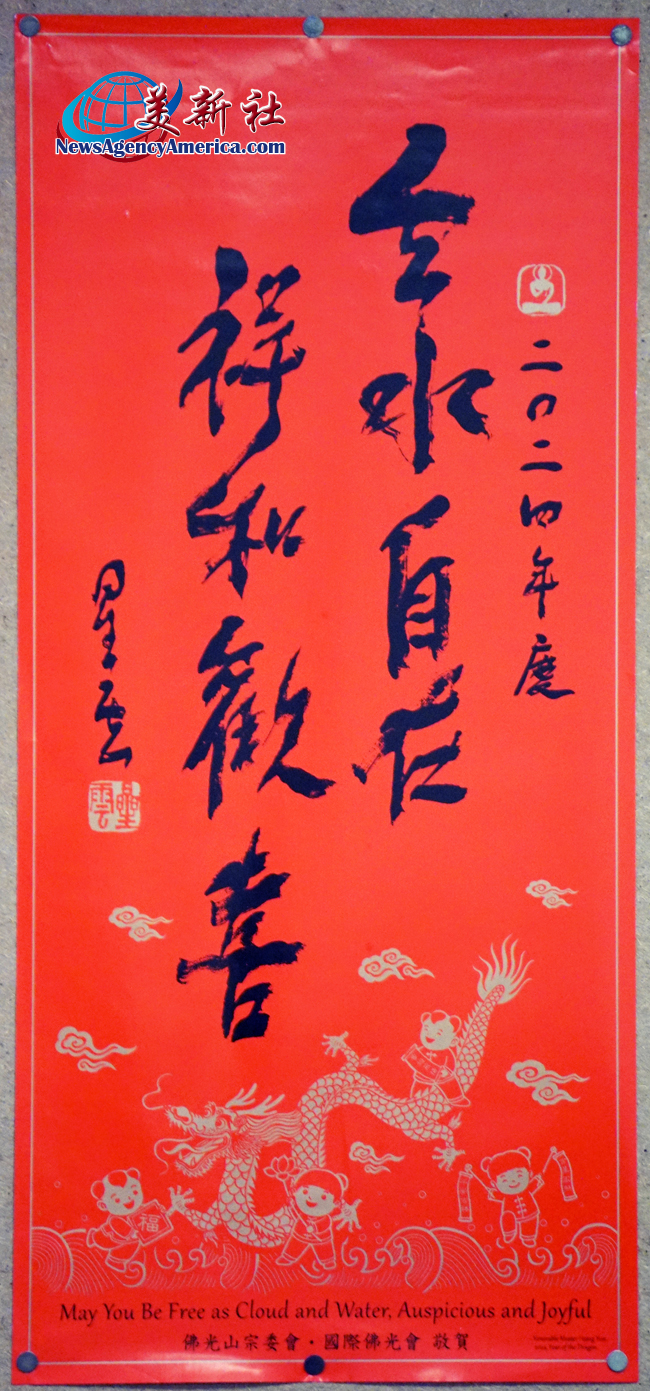 美新社
NewsAgencyAmerica.com
二〇二四年度
云水自在
祥和歡喜
星雲
星雲
福
May You Be Free as Cloud and Water, Auspicious and Joyful
佛光山宗委會・國際佛光會 敬賀
Venerable Master Hsing Yun
2024 Year of the Dragon